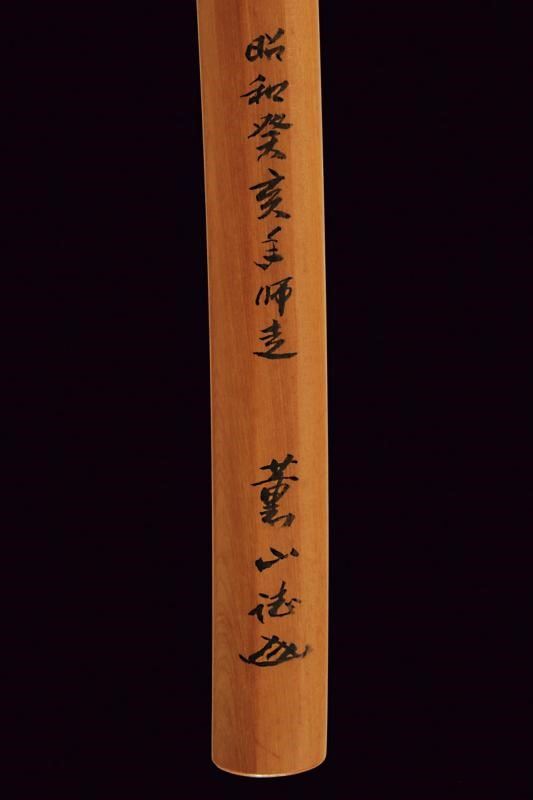 昭和癸亥年師走
薫山誌